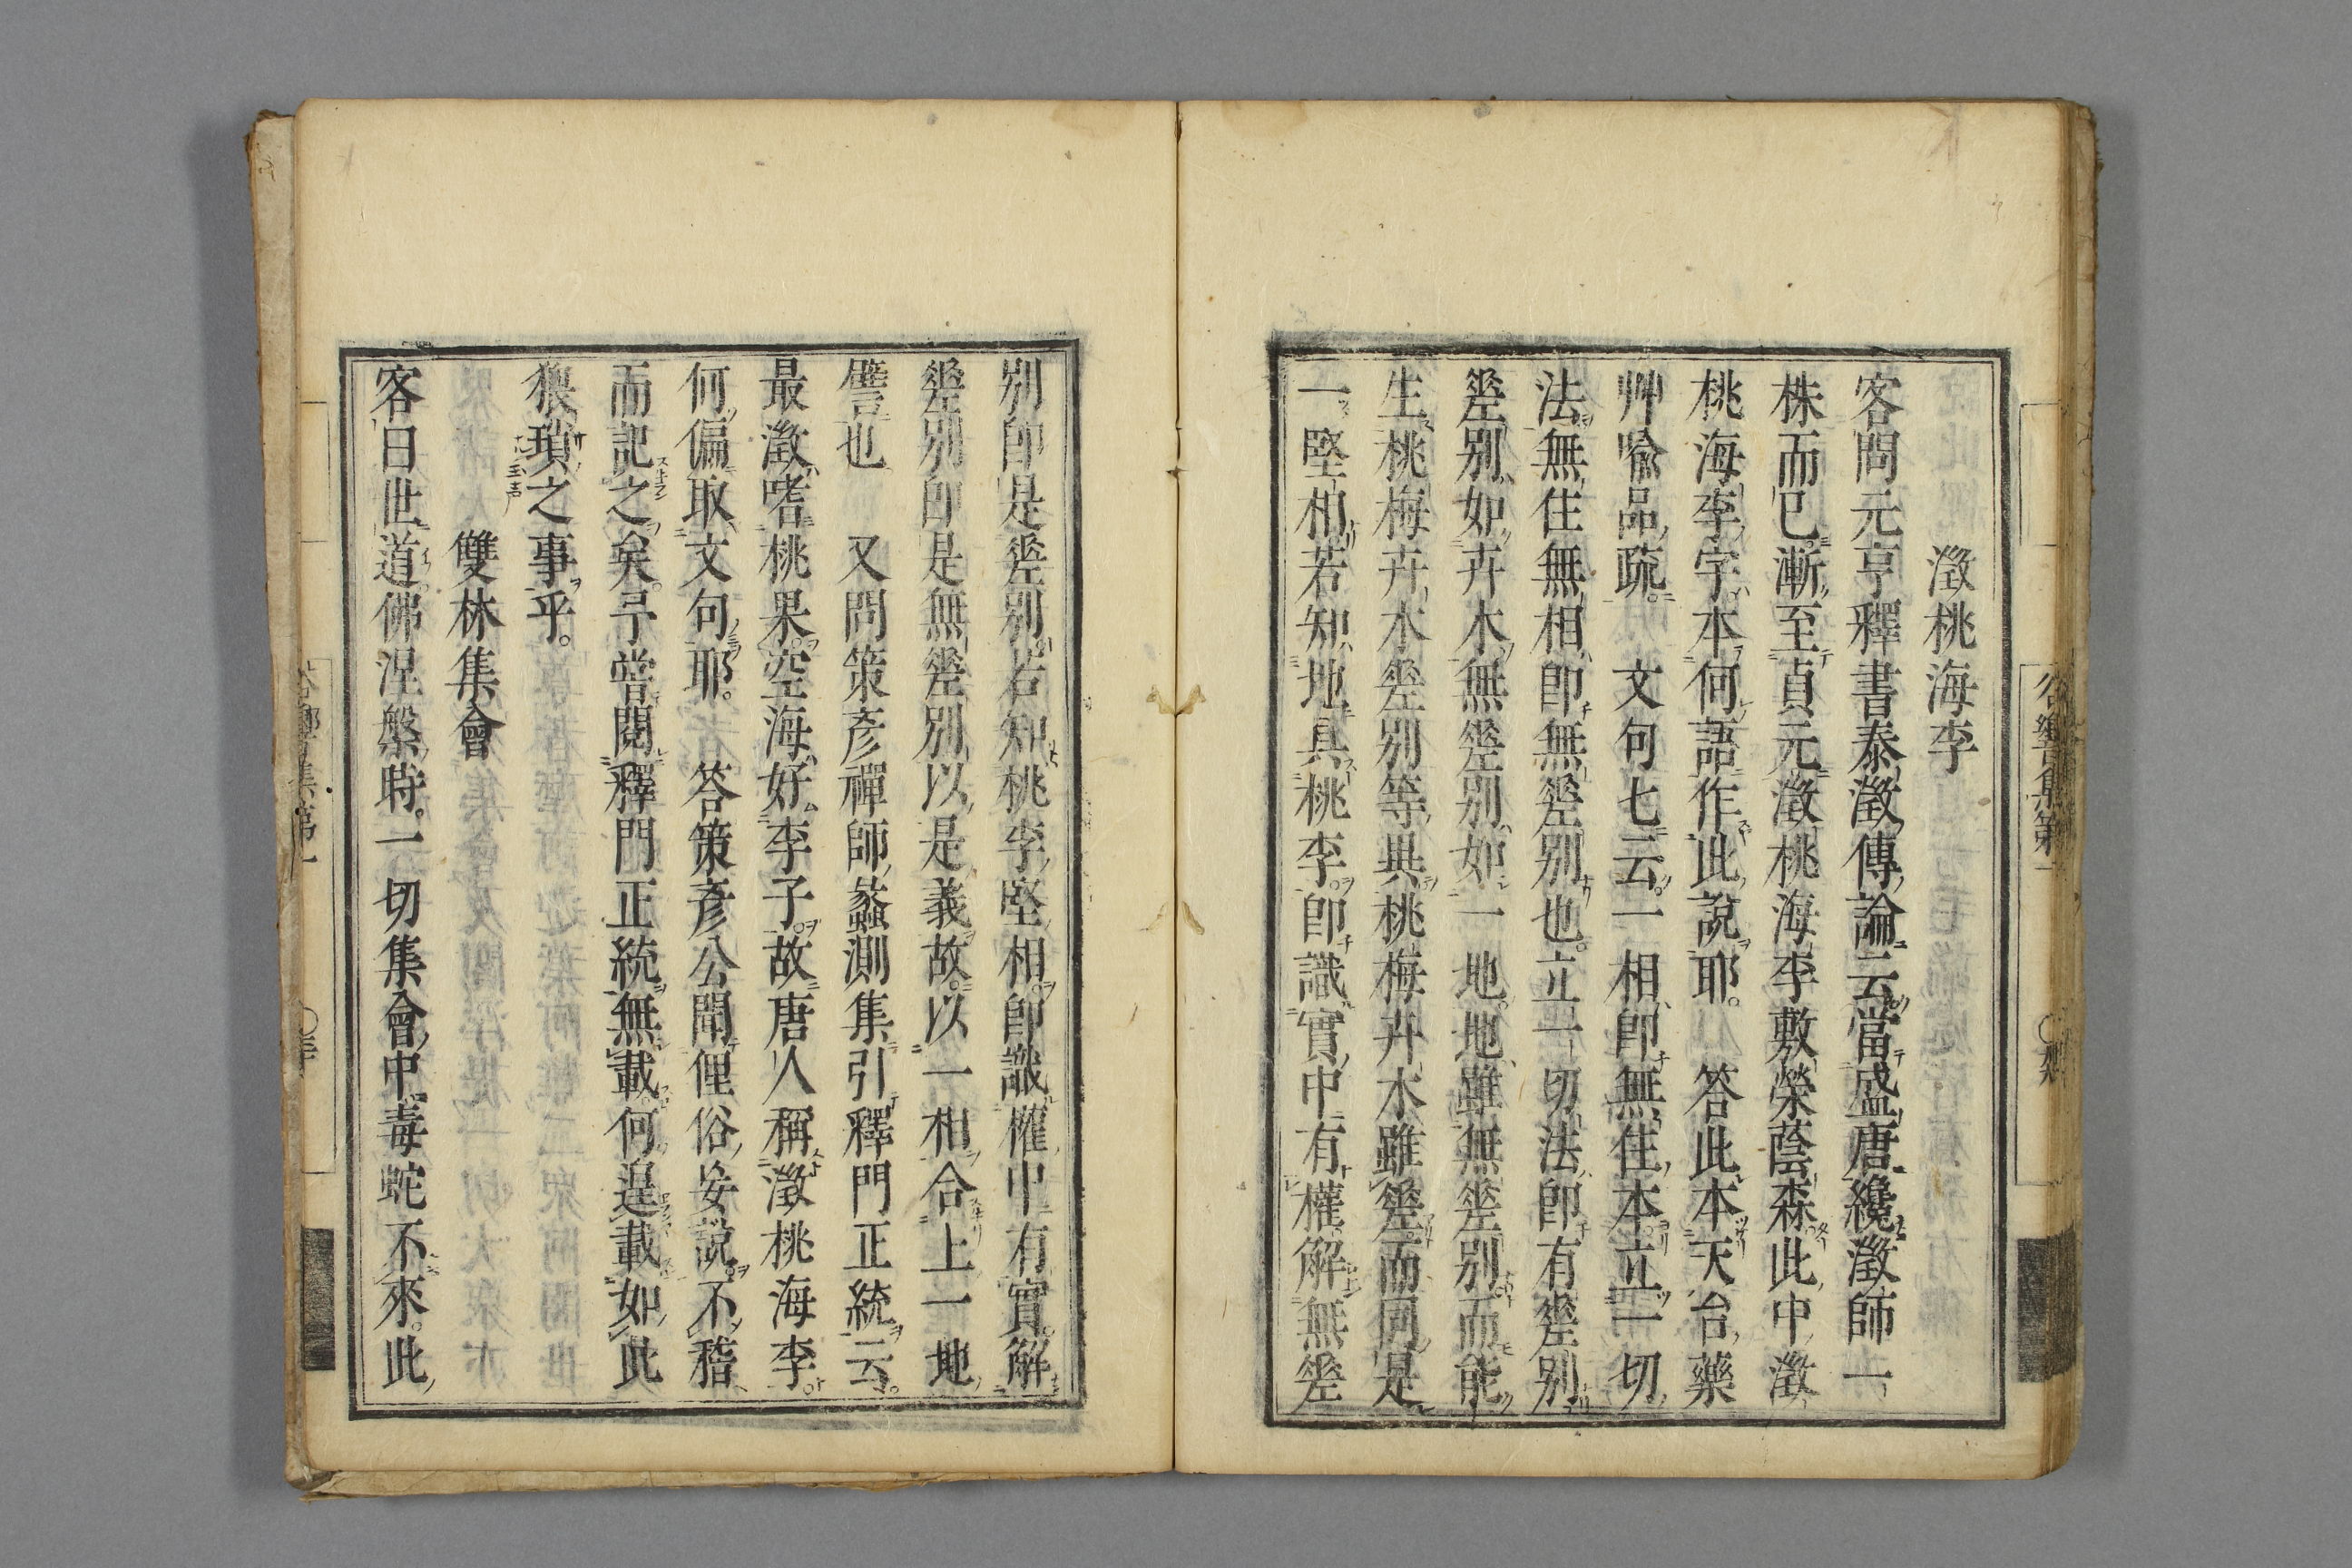 澂桃海李
客問元亨釋書泰澂傳論云當盛唐纔澂師一
株而已漸至貞元澂桃海李敷榮蔭森此中澂
桃海李字本何語作此說耶。 答此本天台藥
艸喻品疏。 文句七云。一相卽無住本立一切
法無住無相卽無差別也。立一切法卽有差別
差別如卉木無差別如一地。地雖無差別而能
生桃梅卉木差別等與桃梅卉木雖差而同是
一堅相若知地具桃李。卽識實中有權解無差
別卽是差別若知桃李堅相。卽識權中有實。解
差別卽是無差別以是義故。以一相合上一地
譬也 又問策彥禪師蠡測集引釋門正統云。
最澂嗜桃果。空海好李子。故唐人稱澂桃海李。
何偏取文句耶。 答策彥公聞俚俗妄說。不稽
而記之矣。予嘗閱釋門正統無載。何遑載如此
猥瑣之事乎。
雙林集會
客曰世道。佛涅槃時。一切集會中毒蛇不來。此
谷響集第一